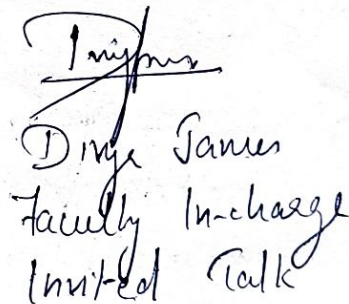 Divya James
Faculty In-charge
Invited Talk